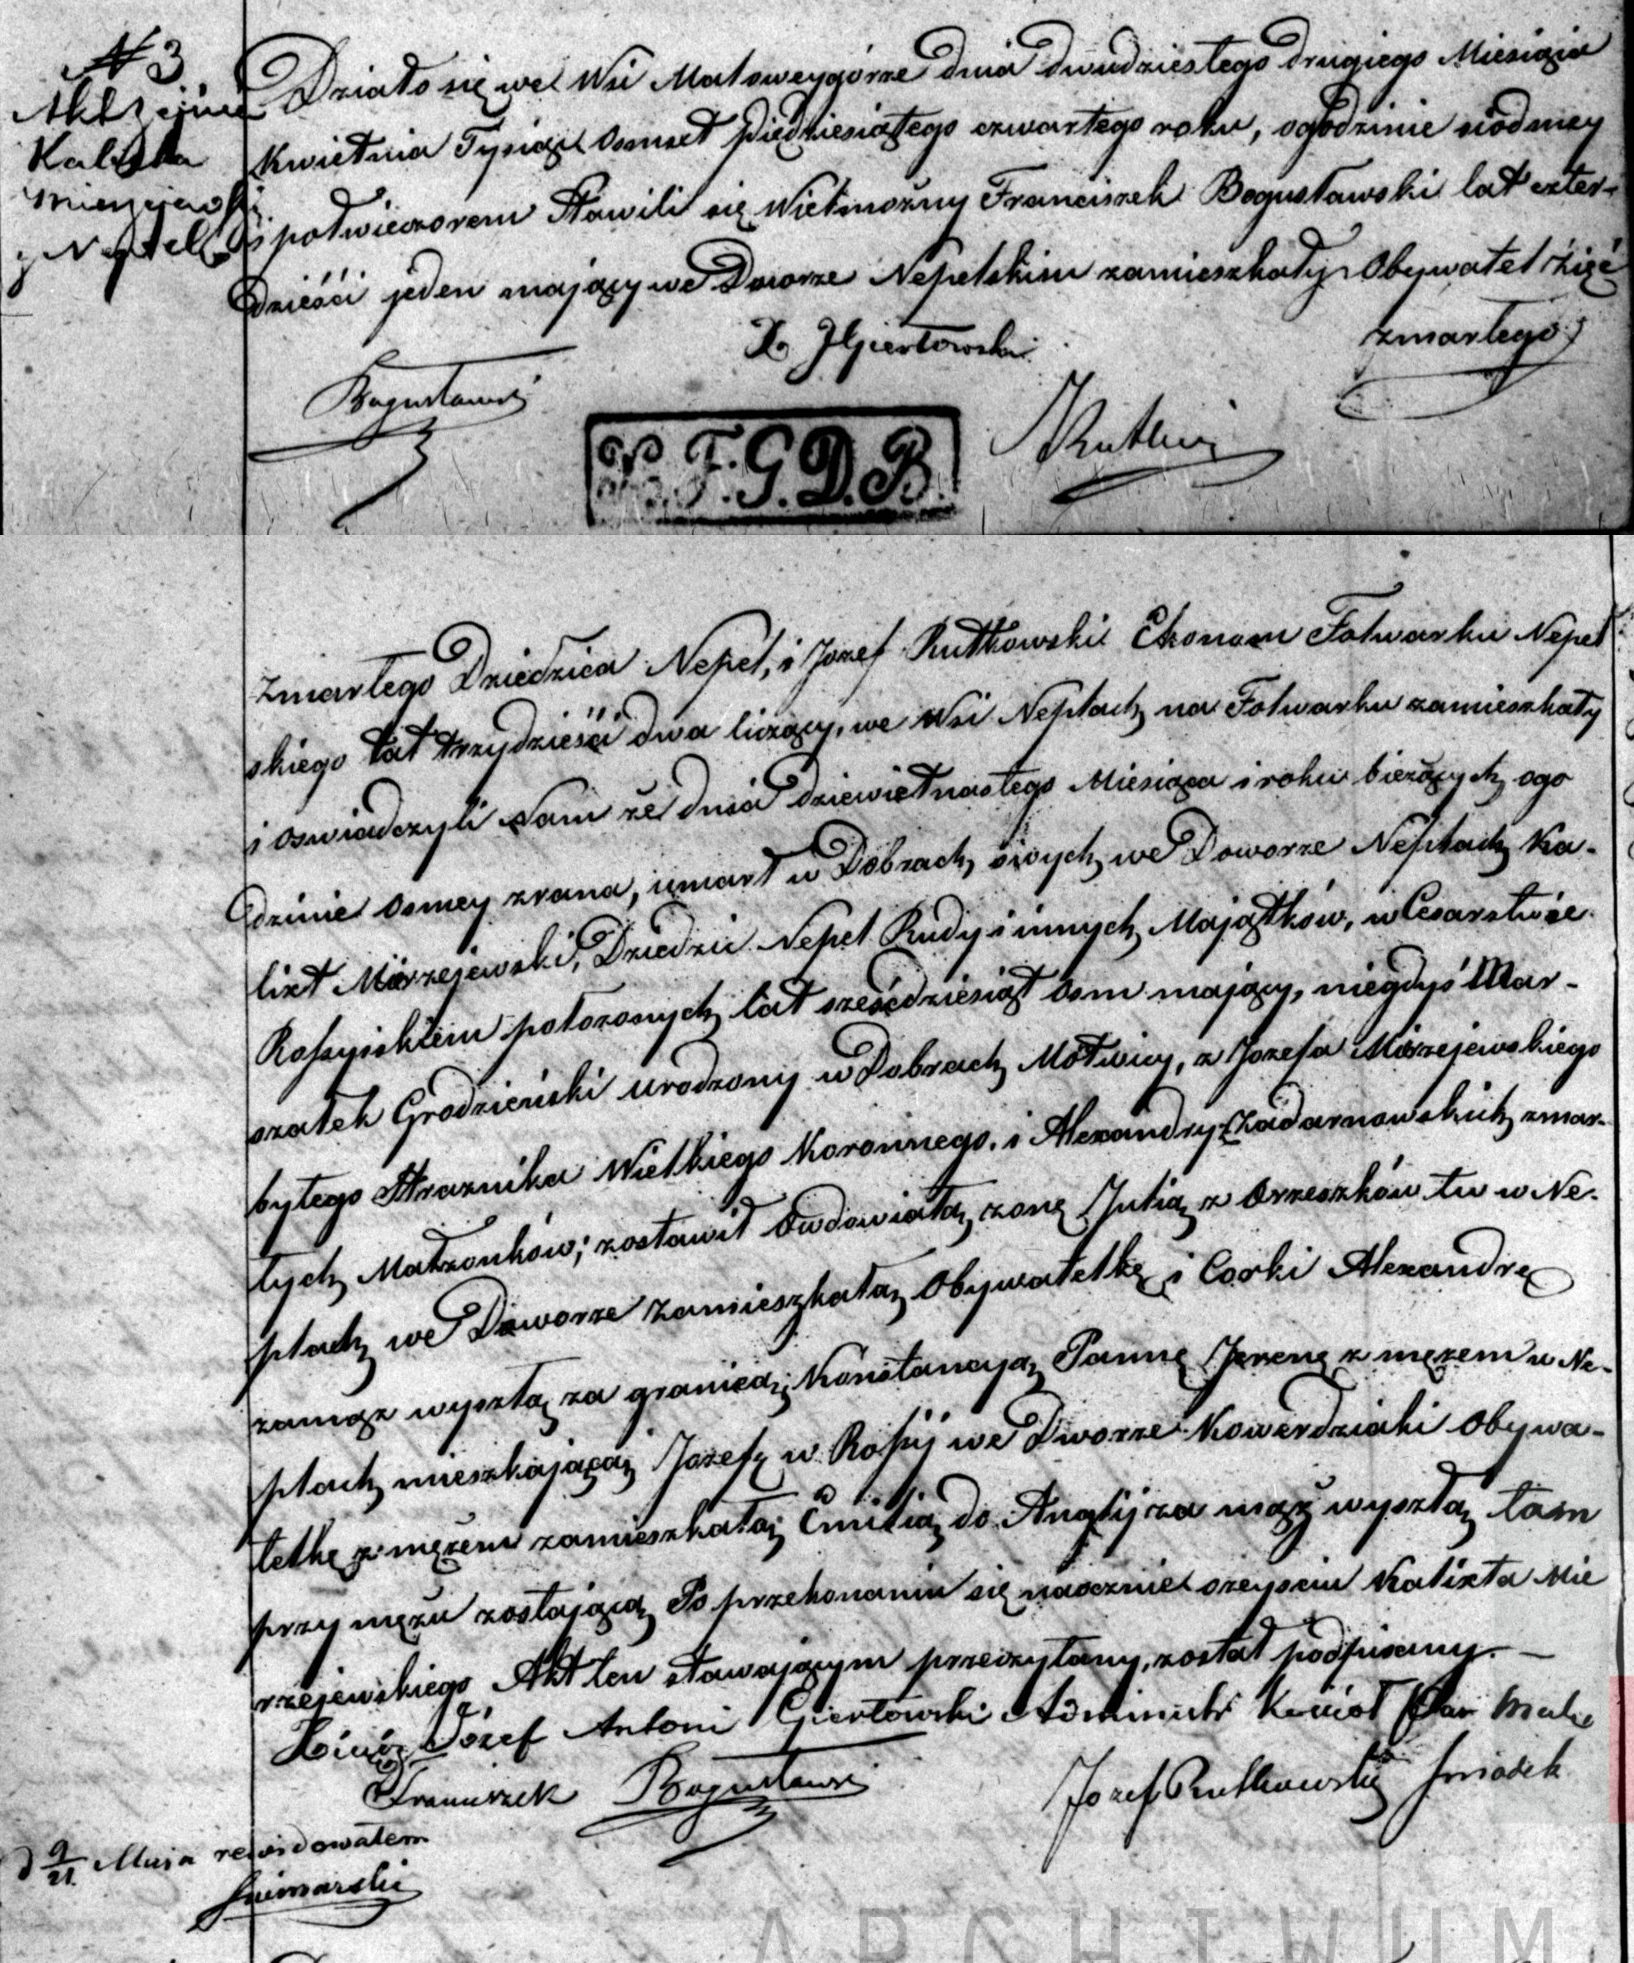 N 3
Akt Zejścia
Kalixta
Mierzejewski
z Nepel
Działo się we Wsi Małoweygórze dnia dwudziestego drugiego Miesiąca
Kwietnia Tysiąc Osmset pięcdziesiątego czwartego roku, ogodzinie siodmey
i połwieczorem Stawili się Wielmożny Franciszek Bogusławski lat czter-
dzieści jeden mający we Dworze Nepelskim zamieszkały Obywatel Zięć
zmarłego
X. JGiertowski
Bogusławski
JRutkow
K. F. G. D. B.
zmarłego Dziedzica Nepel, i Jozef Rutkowski Ekonom Folwarku Nepel
skiego lat trzydzieści dwa liczący, we Wsi Neplach na Folwarku zamieszkały
i oswiadczyli Nam że dnia dziewiętnastego Miesiąca i roku bieżących ogo
dzinie Osmey zrana, umarł w Dobrach swych we Dworze Neplach Ka-
lixt Mierzejewski, Dziedzic Nepel Rudy i innych Majątków, w Cesarstwie
Rossyiskiem położonych lat sześćdziesiąt osm mający, niegdyś Mar-
szałek Grodzieński urodzony w Dobrach Motwicy, z Jozefa Mierzejewskiego
byłego Strażnika Wielkiego Koronnego. i Alexandry Zadarnowskich zmar-
łych Małżonków; zostawił Owdowiałą żonę Julią z Orzeszków tu w Ne-
plach we Dworze zamieszkałą Obywatelkę i Corki Alexandrę
zamąz wyszłą za granicą; Konstancyą Pannę Jrenę z mężem w Ne-
plach mieszkającą Jozefę w Rossyi we Dworze Kowerdziaki Obywa-
telkę z mężem zamieszkałą; Emilią do Anglij za mąż wyszłą tam
przy mężu zostającą Po przekonaniu się naocznie o zeysciu Kalixta Mie
rzejewskiego Akt ten stawającym przeczytany, został podpisany. —
Xiądz Józef Antoni Giertowski Administr Kościoł Par Malo
Franciszek Bogusławski
Jozef Rutkowski Swiadek
d 9/21 Maja rewidowałem